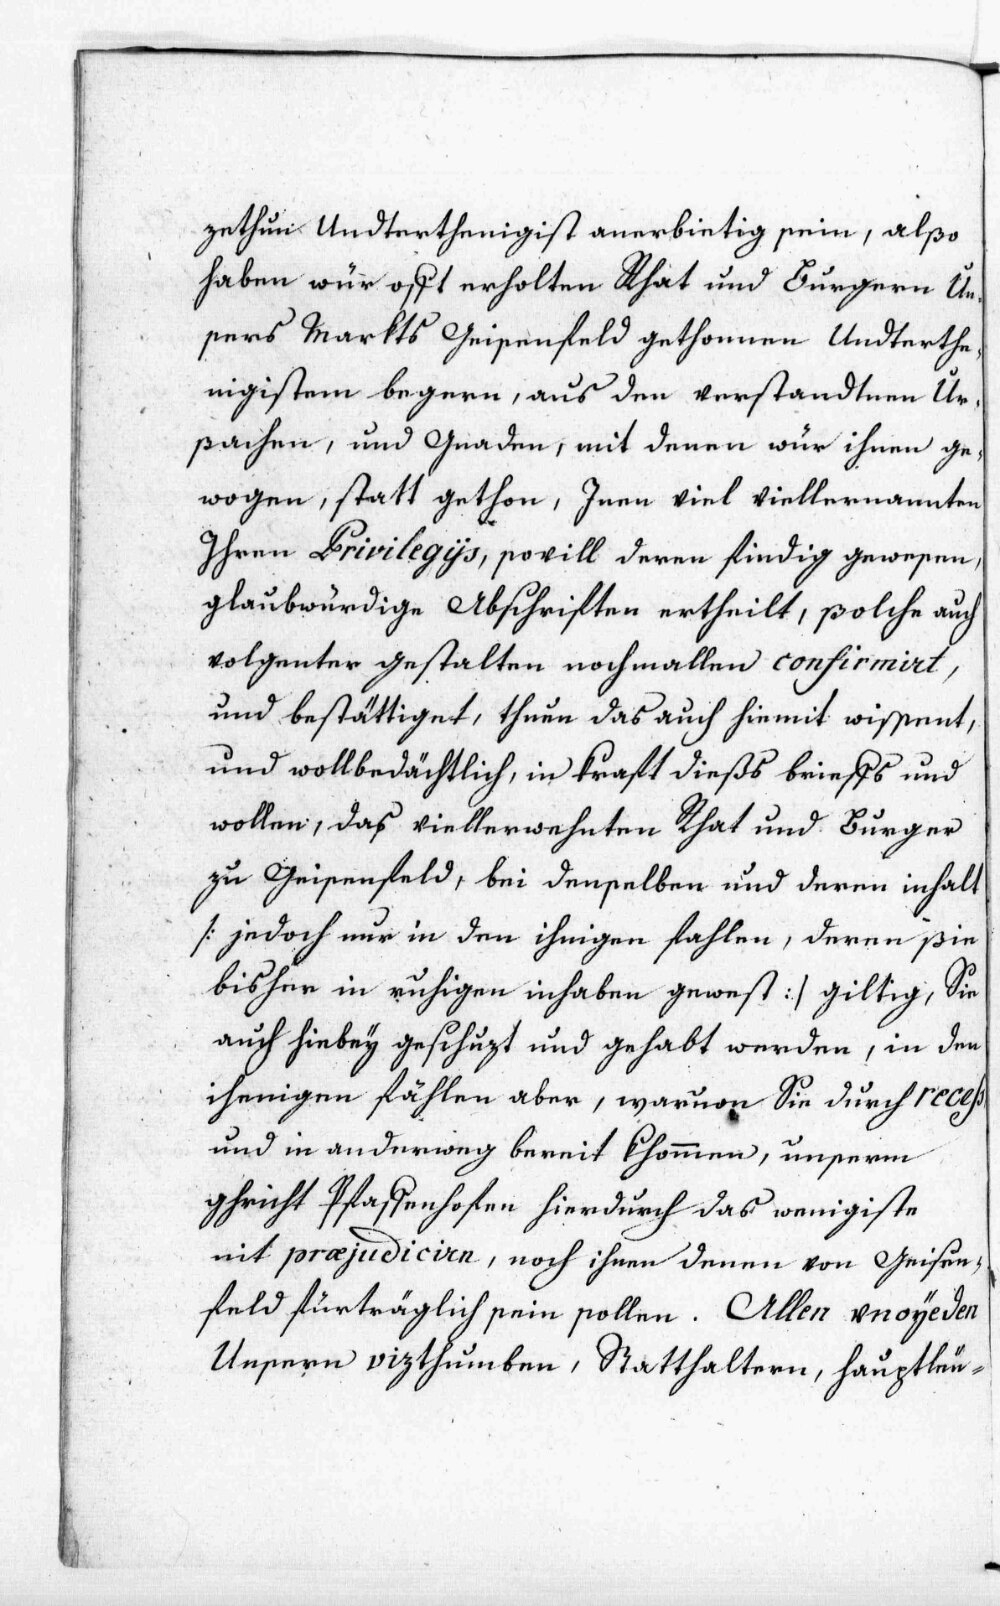 zethun Undterthenigist anerbietig sein, alßo
haben wür offt erholten Rhat und Burgern Un-
sers Markts Geisenfeld gethonnen Undterthe-
nigistem begern, aus den verstandtnen Ur-
ßachen, und Gnaden, mit denen wür ihnen ge-
wogen, statt gethon, Inen viel viellernannten
Ihren Privilegÿs, sovill deren findig gewesen,
glaubwürdige Abschriften ertheilt, solche auch
volgenter gestalten nochmallen confirmirt,
und bestättiget, thuen das auch hiemit wissent,
und wollbedächtlich, in kraft dießs brieffs und
wollen, das viellerwehnten Rhat und Burger
zu Geisenfeld, bei denselben und deren inhalt
/: jedoch nur in den ihnigen fahlen, deren sie
bisher in ruhigen inhaben gewest :/ giltig, Sie
auch hiebeÿ geschuzt und gehabt werden, in den
ihenigen fählen aber, waruon Sie durch recess
und in anderweg bereit khommen, unserm
ghricht Pfaffenhofen hierdurch das wenigiste
nit præjudicirn, noch ihnen denen von Geisen-
feld fürträglich sein sollen. Allen vnoÿeden
Unsern vizthumben, Statthaltern, hauptleü-